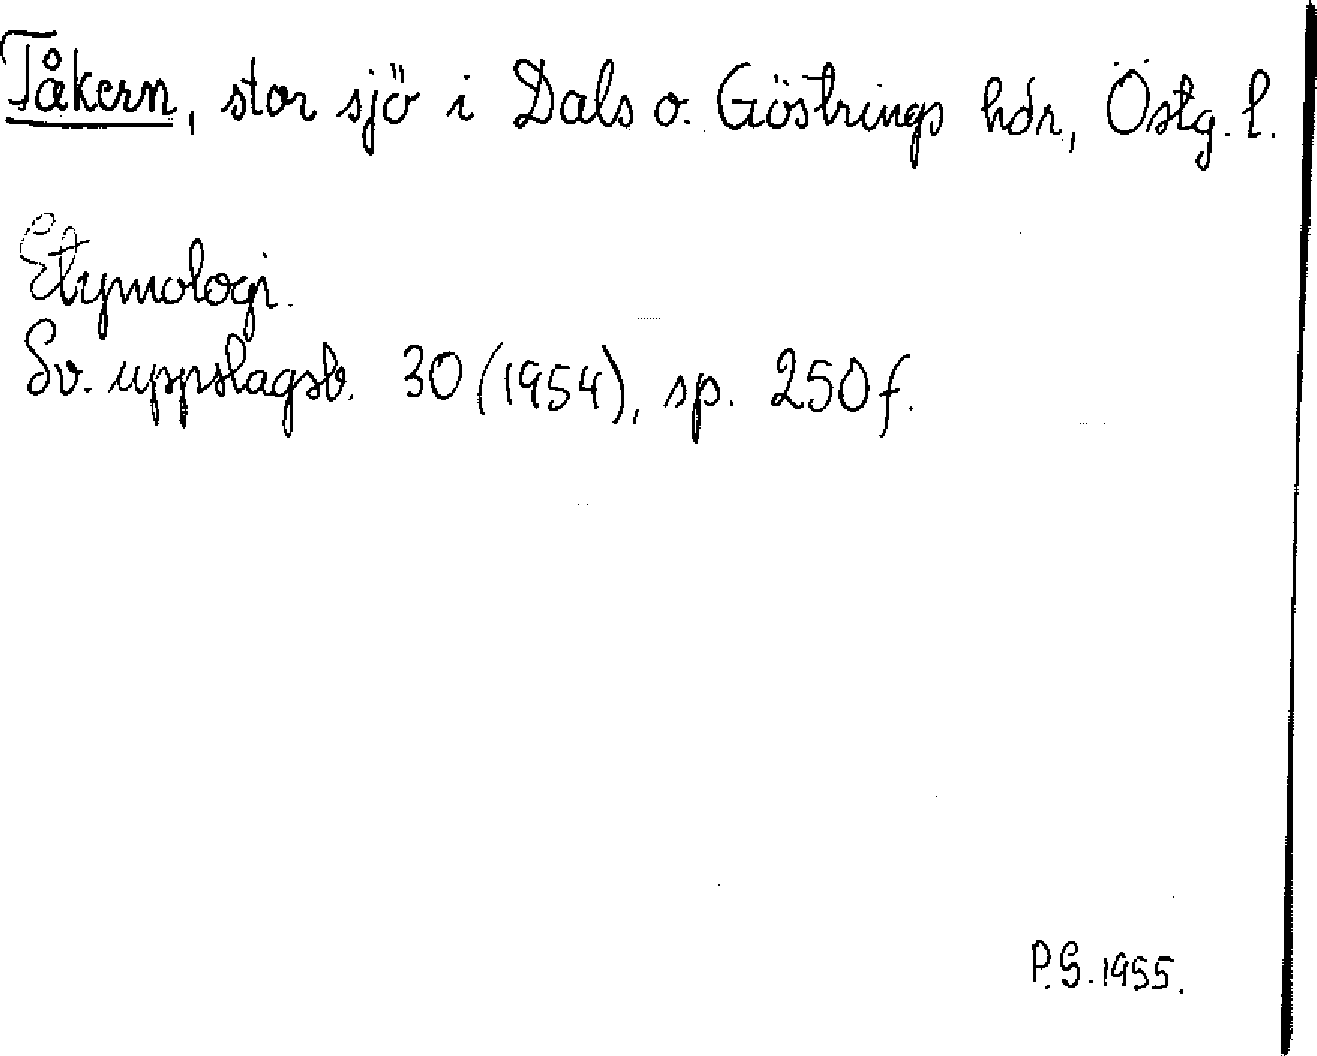 Tåkern, stor sjö i Dals o. Göstrings hdr, Östg. l.
Etymologi.
Sv. uppslagsb. 30 (1954), sp. 250 f.
P.G. 1955.